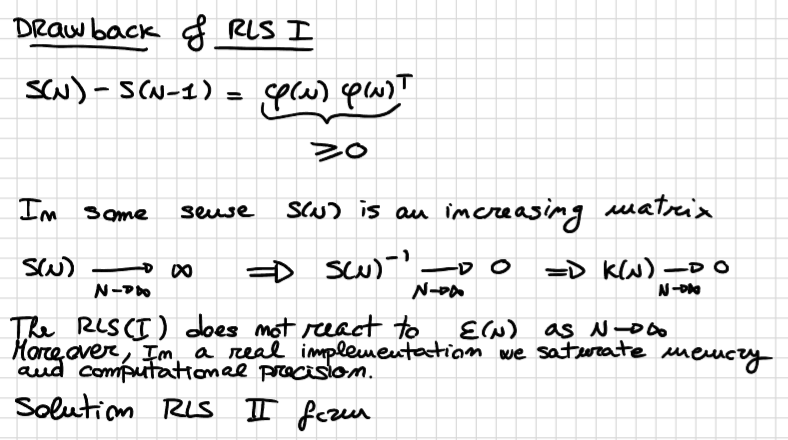 Drawback of RLS I
S(N) - S(N-1) = φ(N) φ(N)ᵀ
≥0
In some sense S(N) is an increasing matrix
S(N) ⟶ ∞ ⟹ S(N)⁻¹ ⟶ 0 ⟹ K(N) ⟶ 0
N→∞ N→∞ N→∞
The RLS(I) does not react to ε(N) as N→∞
Moreover, In a real implementation we saturate memory
and computational precision.
Solution RLS II form